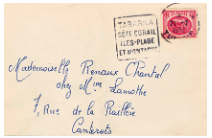 TABARKA
CÔTE CORAIL
ILES-PLAGE
ET MONTAGNE
Mademoiselle Renaux Chantal
chez Mme Lamothe
7, Rue de la Raillère
Cauterets